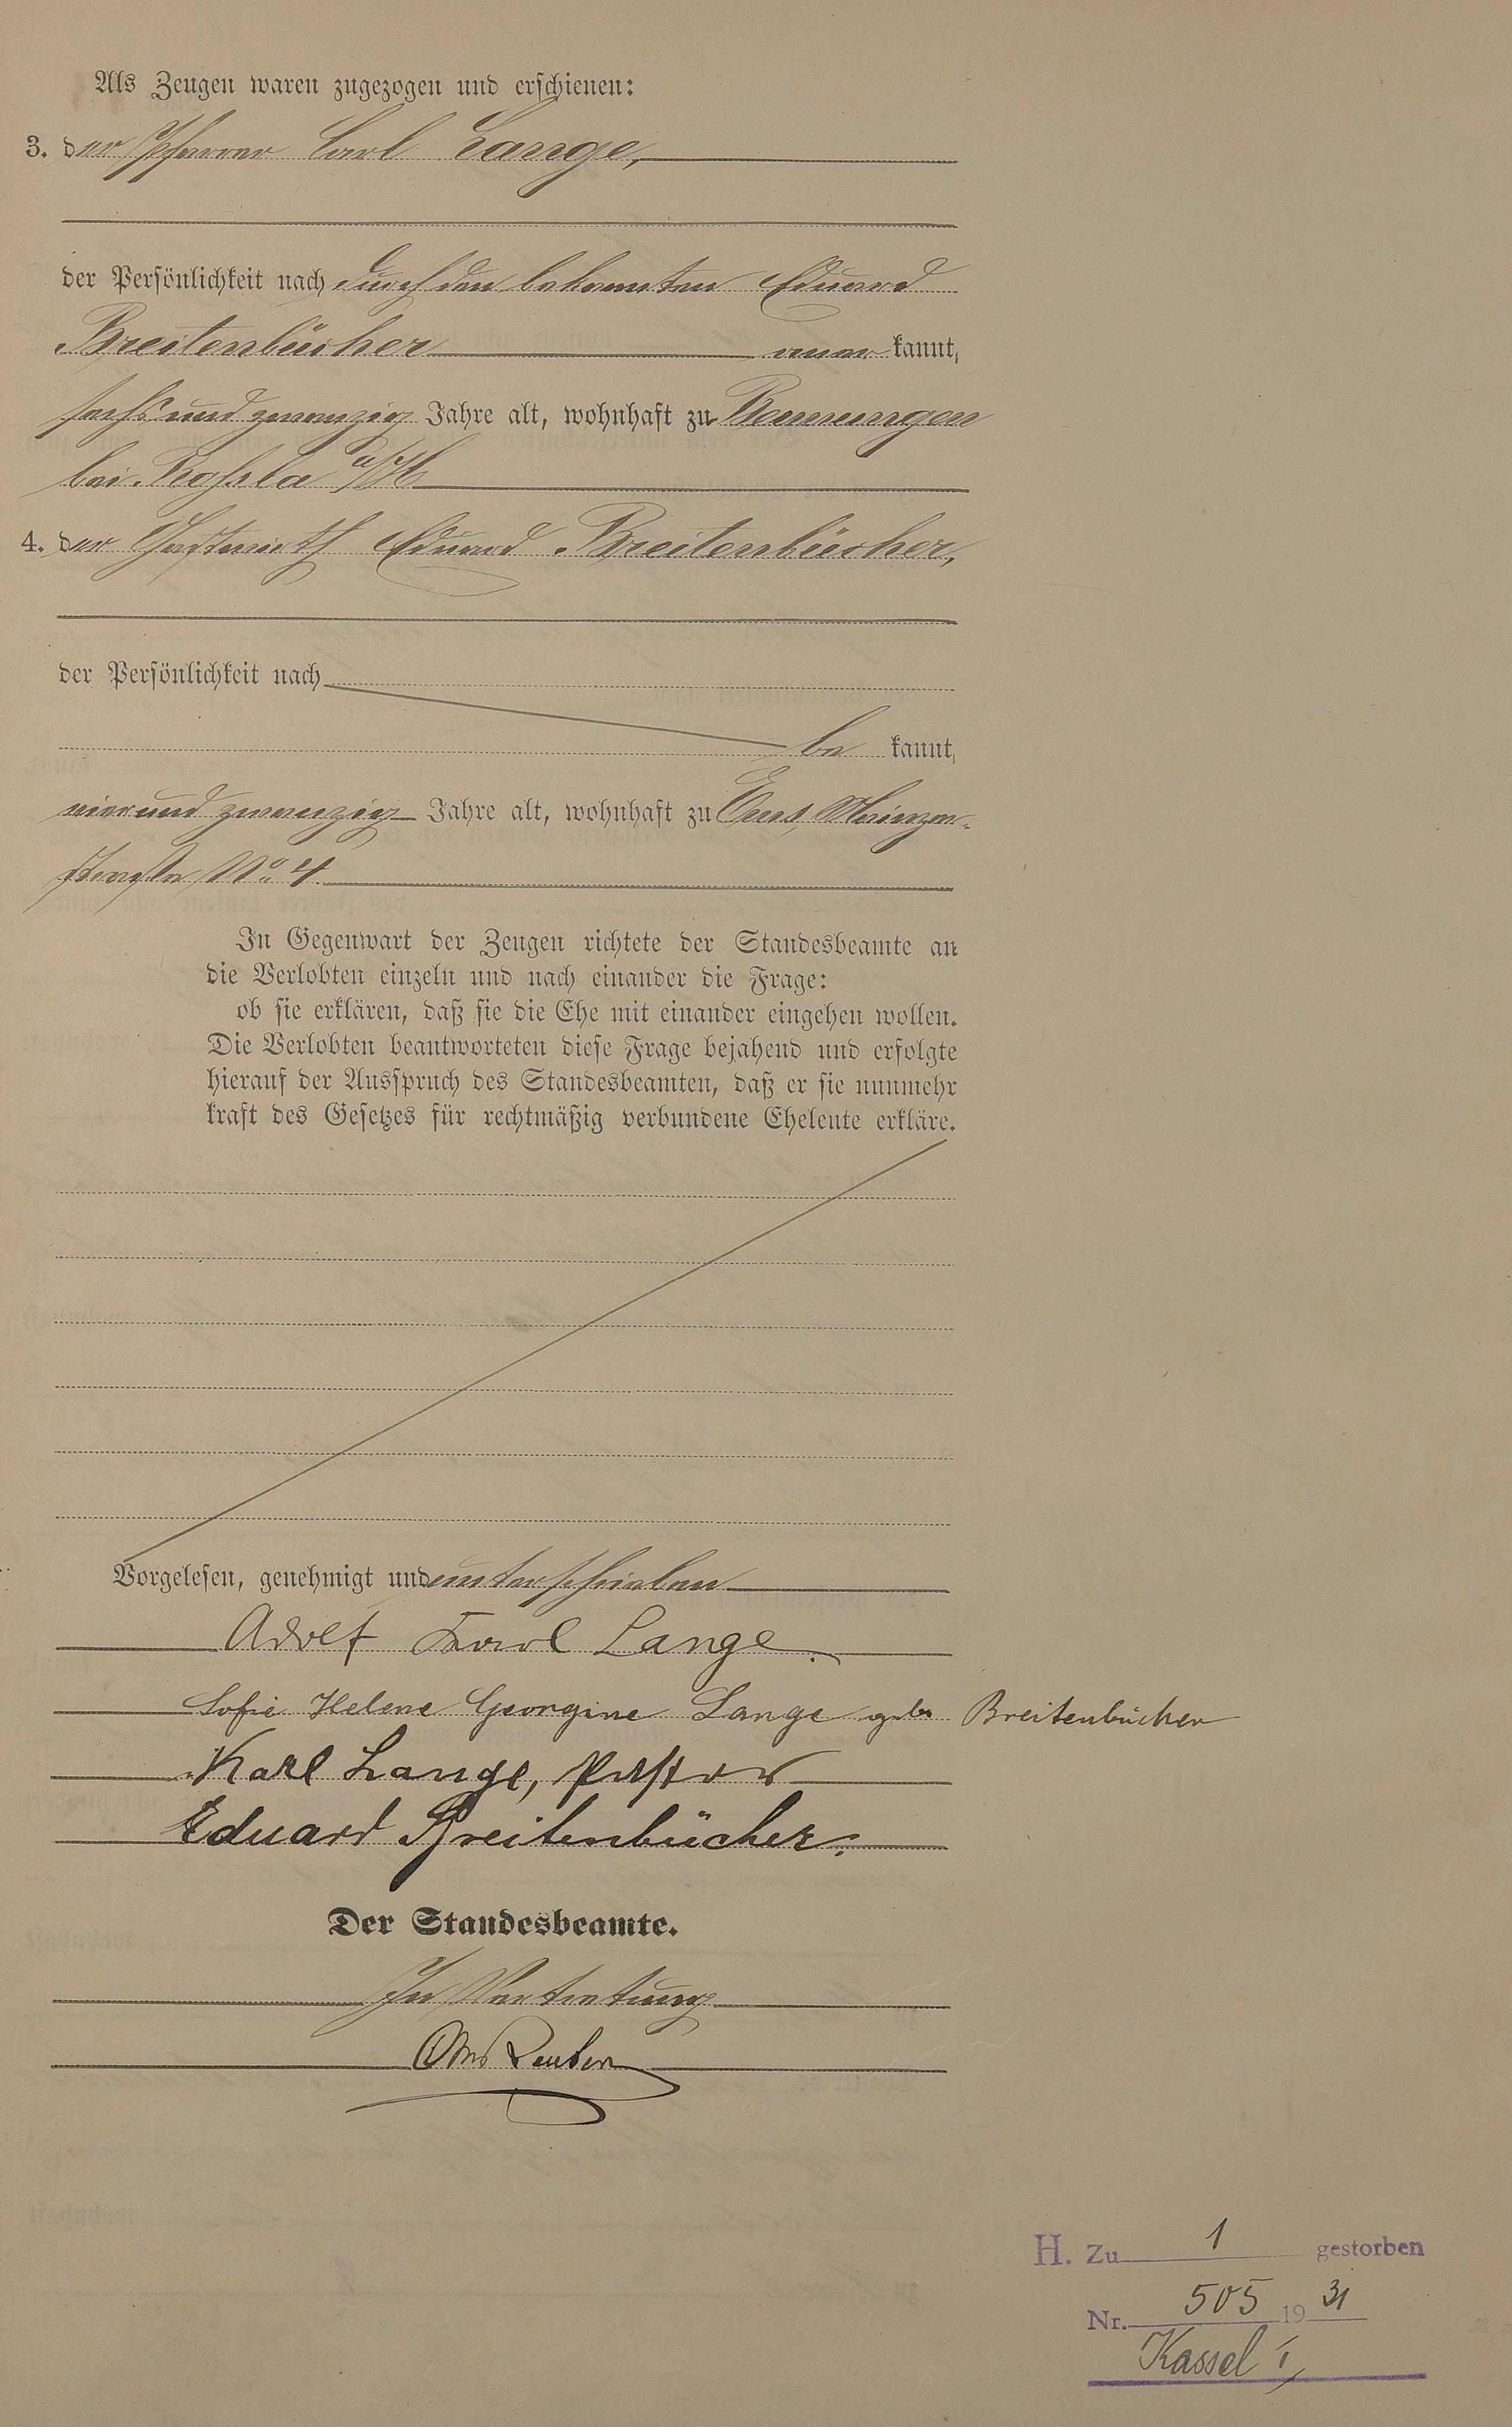 Als Zeugen waren zugezogen und erschienen:
3. der Pfarrer Carl Lange,
der Persönlichkeit nach durch den bekannten Eduard
Breitenbücher anerkannt,
sechs und zwanzig Jahre alt, wohnhaft zu
bei Roßla a/H
4. der Gastwirth Eduard Breitenbücher,
der Persönlichkeit nach
be kannt,
vier und zwanzig Jahre alt, wohnhaft zu Ems, Mainzer-
straße No. 4.
In Gegenwart der Zeugen richtete der Standesbeamte an
die Verlobten einzeln und nach einander die Frage:
ob sie erklären, daß sie die Ehe mit einander eingehen wollen.
Die Verlobten beantworteten diese Frage bejahend und erfolgte
hierauf der Ausspruch des Standesbeamten, daß er sie nunmehr
kraft des Gesetzes für rechtmäßig verbundene Eheleute erkläre.
Vorgelesen, genehmigt und unterschrieben
Adolf Karl Lange.
Sofie Helene Georgine Lange geb. Breitenbücher
Karl Lange, Pastor
Eduard Breitenbücher.
Der Standesbeamte.
In Vertretung
H. Zu 1 gestorben
Nr. 505 1931
Kassel I,